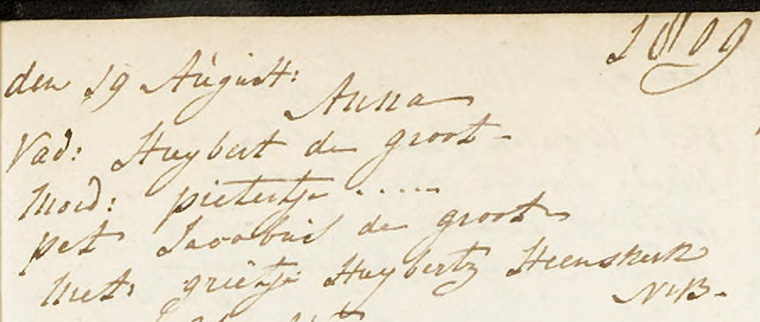 1809
den 19 August:
Anna
Vad: Huybert de groot
Moed: pietertje .....
pet Jacobus de groot
Met: grietje Huybertz Heenskerk
NB.